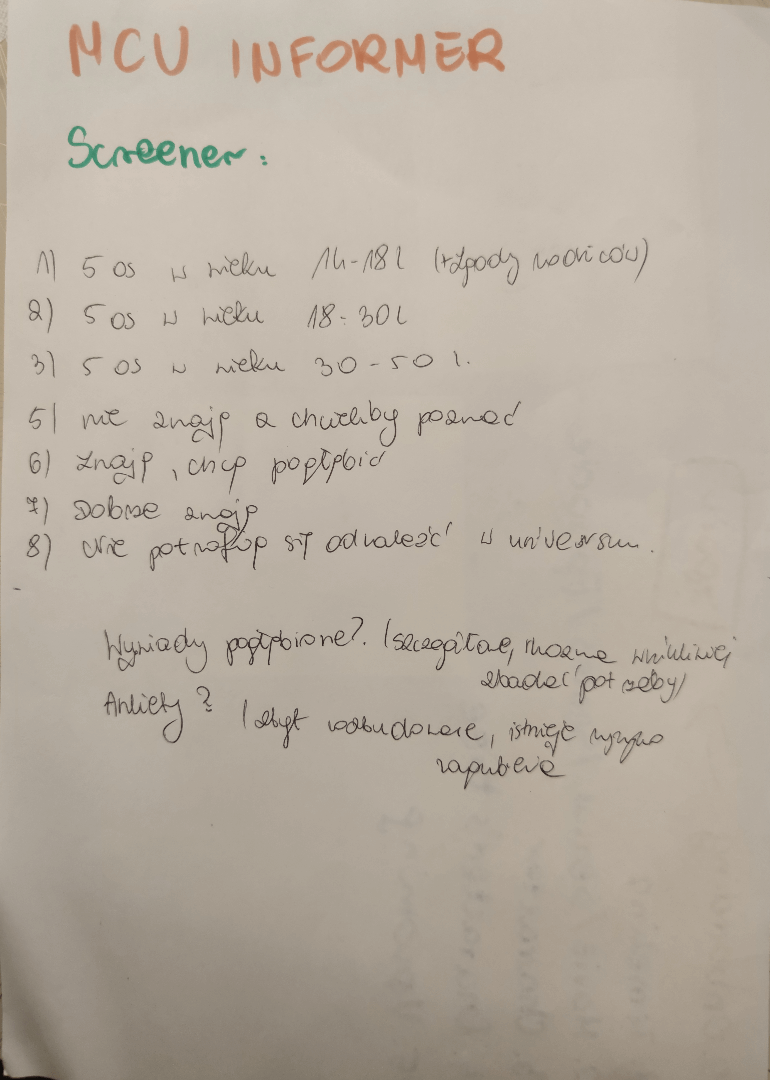 MCU INFORMER
Screener:
1) 5 os w wieku 14-18 l (+zgody rodziców)
2) 5 os w wieku 18-30 l
3) 5 os w wieku 30-50 l.
5) nie znają a chcieliby poznać
6) znają, chcą pogłębić
7) Dobrze znają
8) nie potrafią się odnaleźć w universum.
Wywiady pogłębione? (szczegółowe, można wnikliwiej
zbadać potrzeby)
Ankiety? (zbyt rozbudowane, istnieje ryzyko